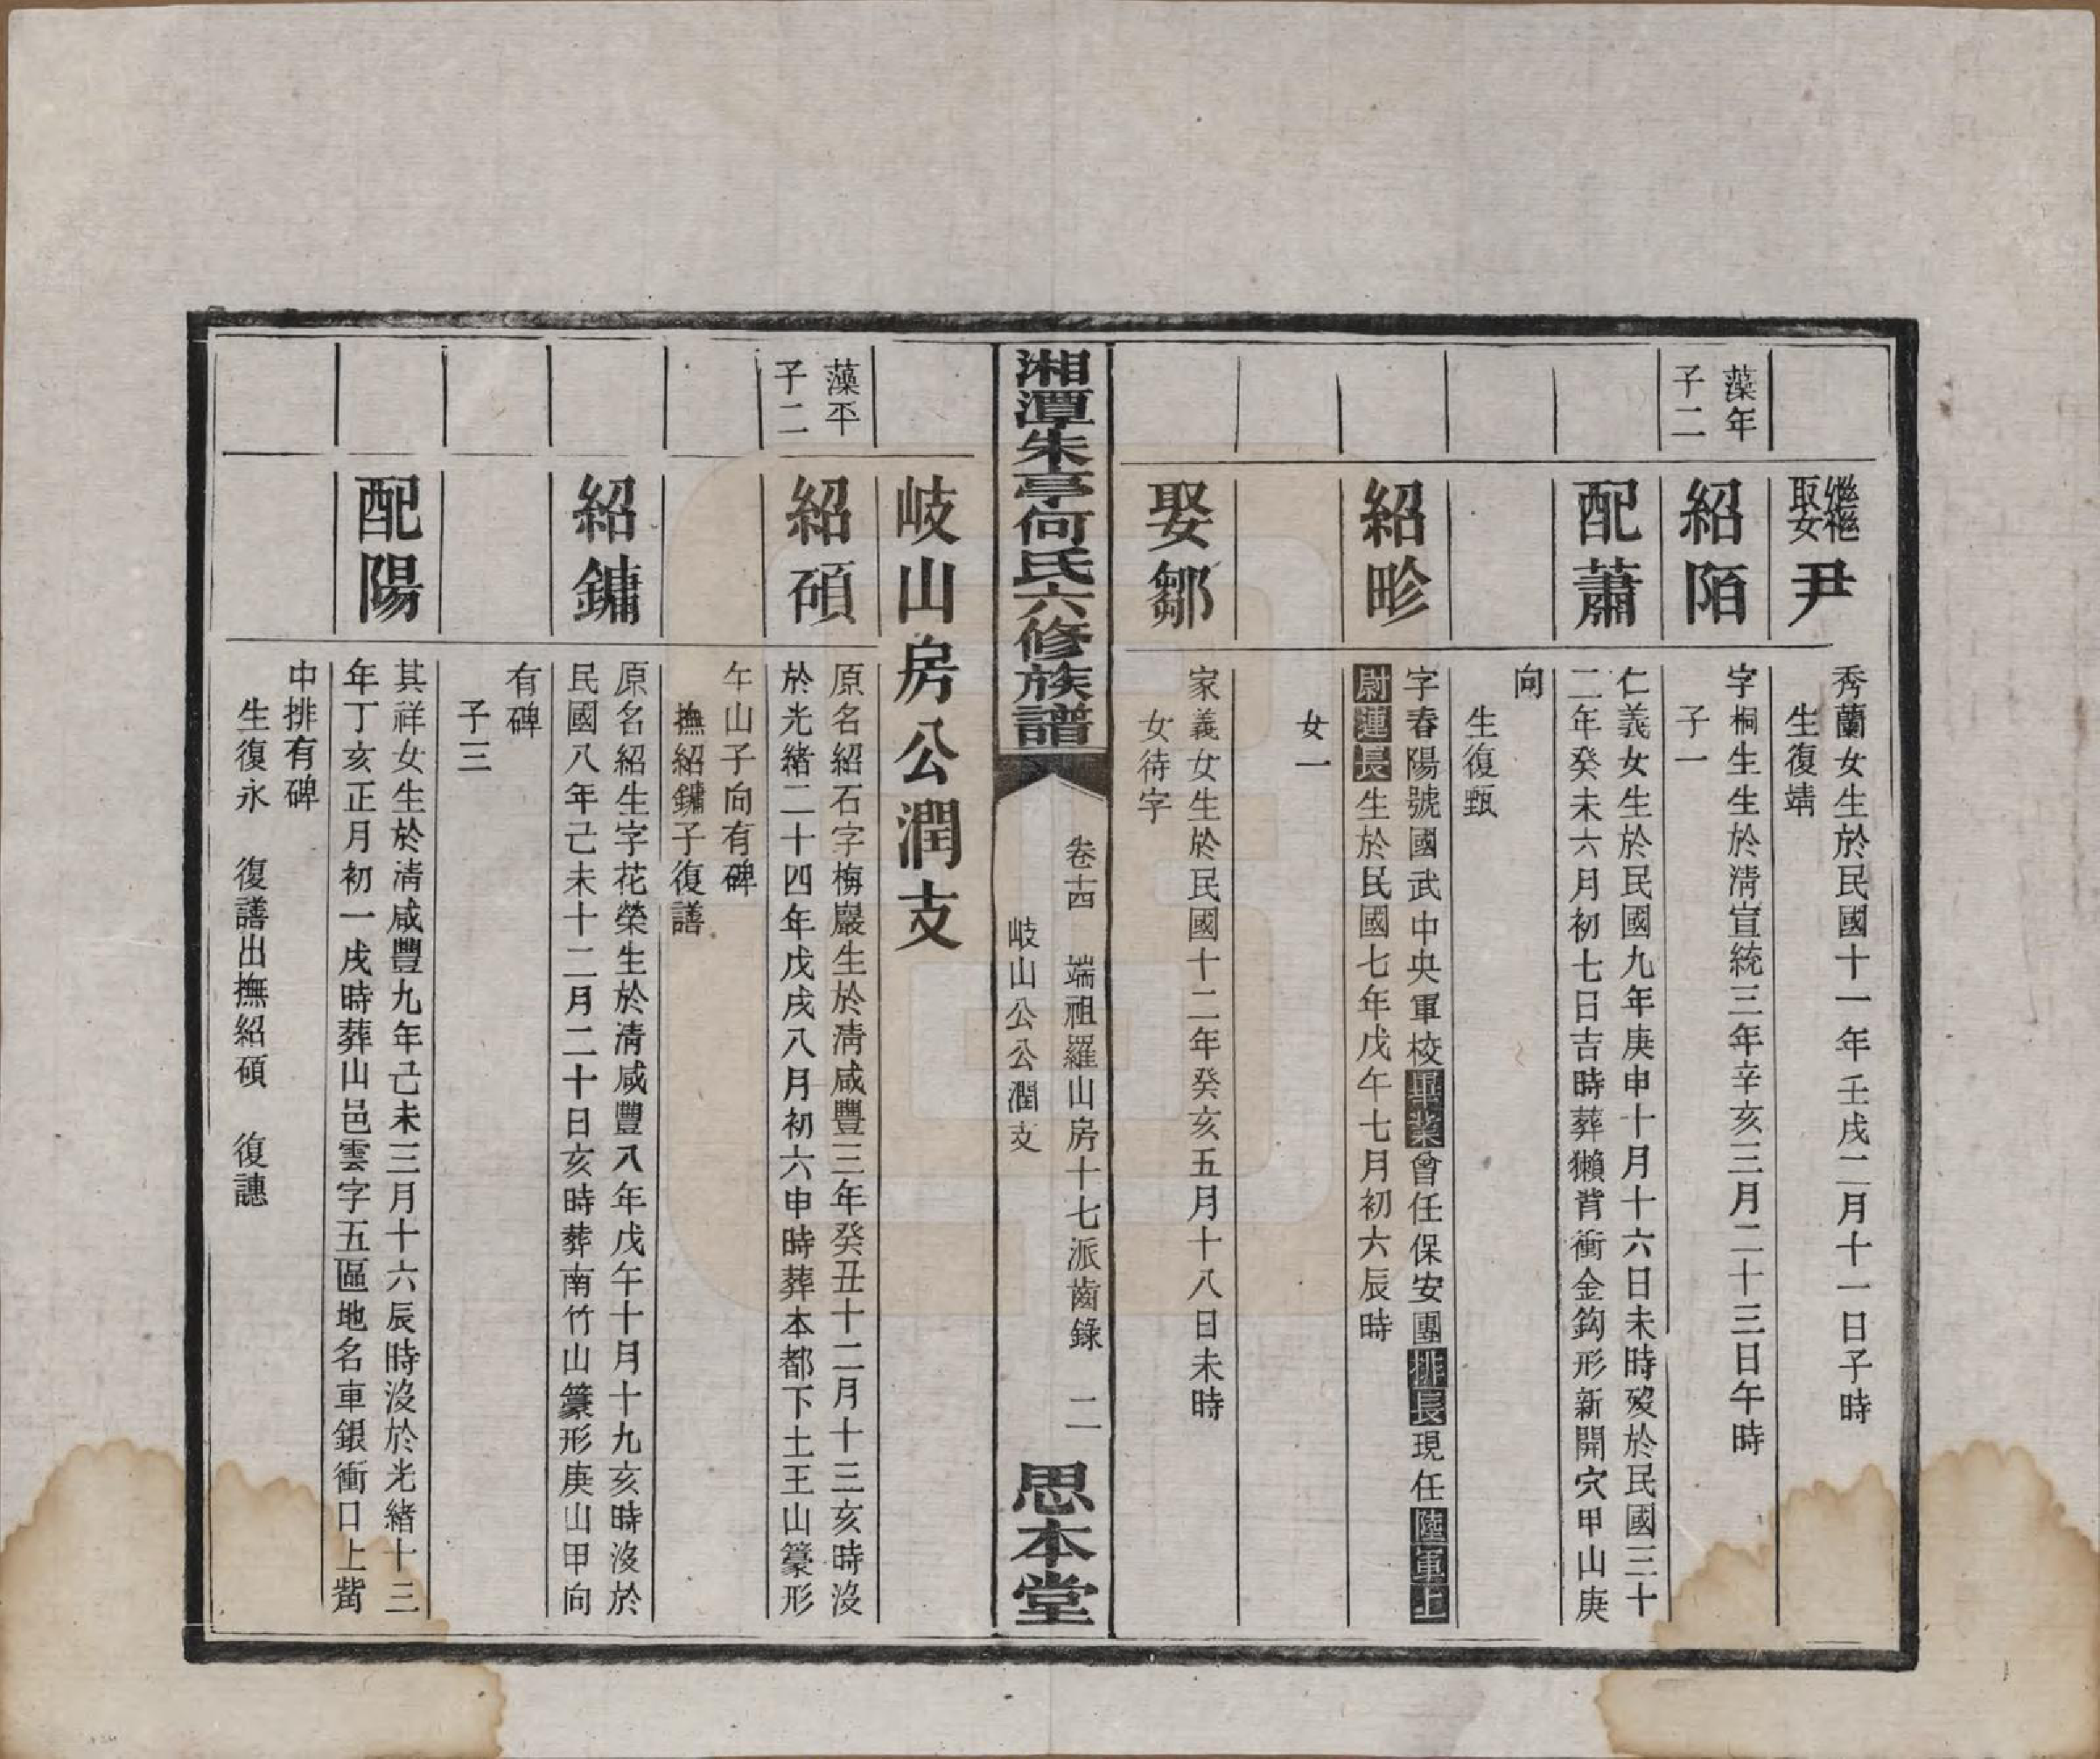 繼娶尹
秀蘭女生於民國十一年壬戌二月十一日子時
生復靖
藻年
子二
紹陌
字桐生生於清宣統三年辛亥三月二十三日午時
子一
配蕭
仁義女生於民國九年庚申十月十六日未時歿於民國三十
二年癸未六月初七日吉時葬獺背衝金鈎形新開穴甲山庚
向
生復甄
紹畛
字春陽號國武中央軍校畢業曾任保安團排長現任陸軍上
尉連長生於民國七年戊午七月初六辰時
女一
娶鄒
家義女生於民國十二年癸亥五月十八日未時
女待字
湘潭朱亭何氏六修族譜
卷十四 端祖羅山房十七派齒錄 二
岐山公公潤支
思本堂
岐山房公潤支
藻平
子二
紹碩
原名紹石字梅巖生於清咸豐三年癸丑十二月十三亥時沒
於光緒二十四年戊戌八月初六申時葬本都下土王山籇形
午山子向有碑
撫紹鏞子復譱
紹鏞
原名紹生字花榮生於清咸豐八年戊午十月十九亥時沒於
民國八年己未十二月二十日亥時葬南竹山籇形庚山甲向
有碑
子三
配陽
其祥女生於清咸豐九年己未三月十六辰時沒於光緒十三
年丁亥正月初一戌時葬山邑雲字五區地名車銀衝口上觜
中排有碑
生復永 復譱出撫紹碩 復譓